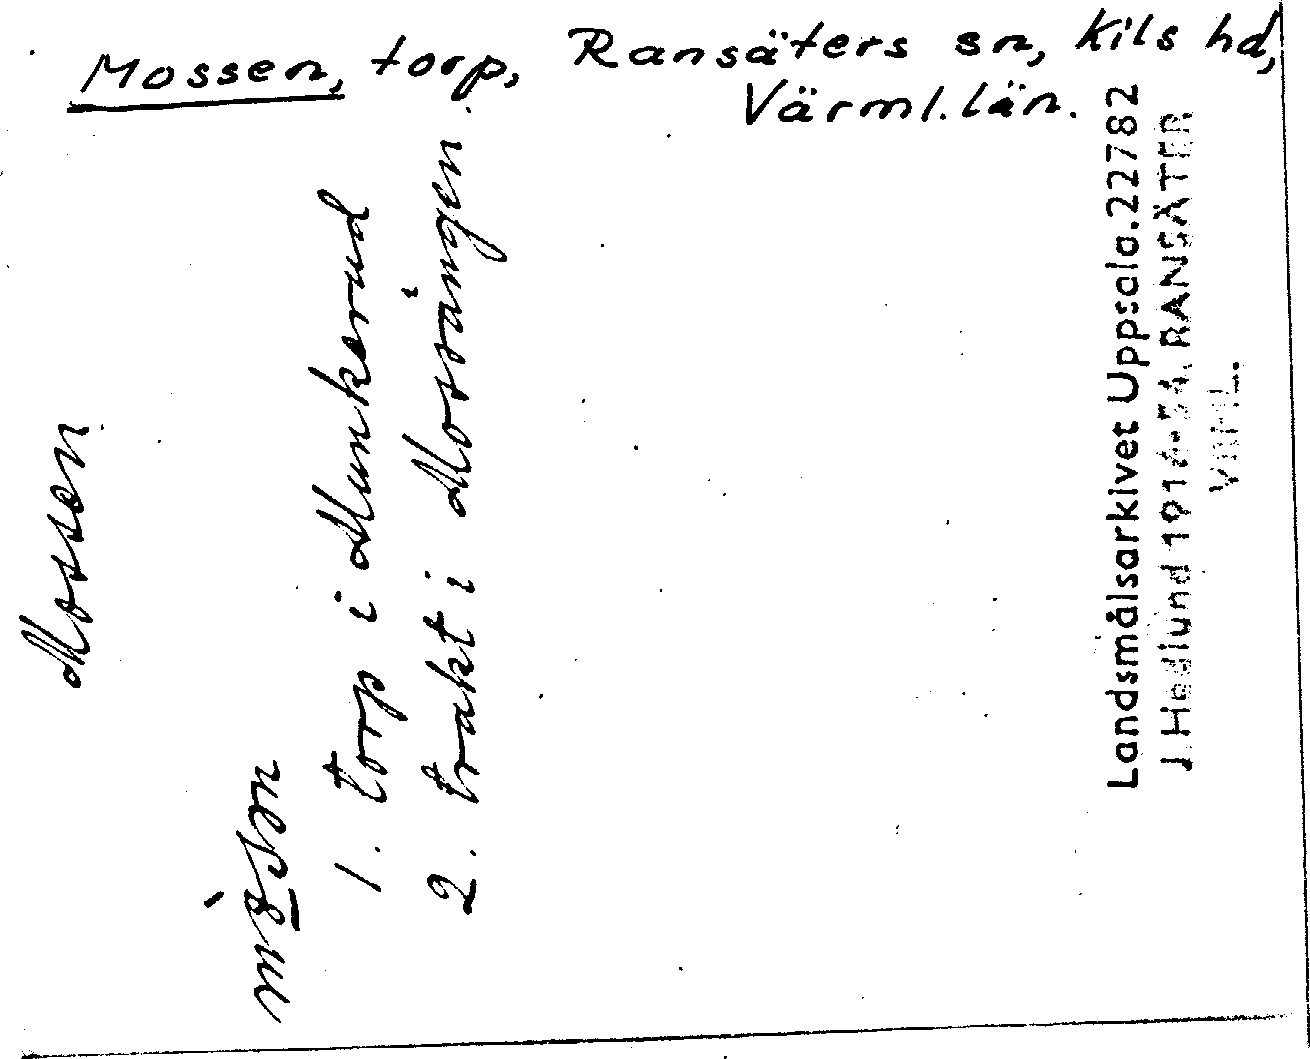 Mossen, torp, Ransäters sn, Kils hd,
Värml. län.
Mossen
1. torp i Munkerud
2. trakt i Mossängen
Landsmålsarkivet Uppsala. 22782
J. Hedlund RANSÄTER
VRML.